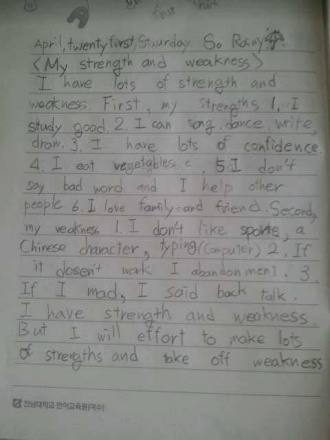 April, twenty first, Saturday So Rainy
<My strength and weakness>
I have lots of strength and
weakness. First, my strengths 1, I
study good. 2. I can song, dance, write,
draw. 3. I have lots of confidence
4. I eat vegetables. 5. I don't
say bad word and I help other
people 6. I love family and friend. Second,
my weakness 1. I don't like sports, a
Chinese character, typing (Computer) 2. If
it dosen't work I abandonment. 3.
If I mad, I said back talk.
I have strength and weakness.
But I will effort to make lots
of strengths and take off weakness
전남대학교 언어교육원(여수)